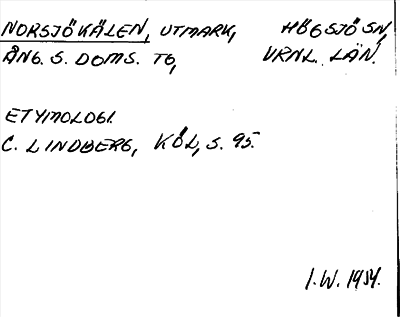 NORSJÖKÄLEN, UTMARK, HÖGSJÖ SN,
ÅNG. S. DOMS. TG, VRNL. LÄN.
ETYMOLOGI.
C. LINDBERG, KÖL, S. 95.
I.W. 1954.